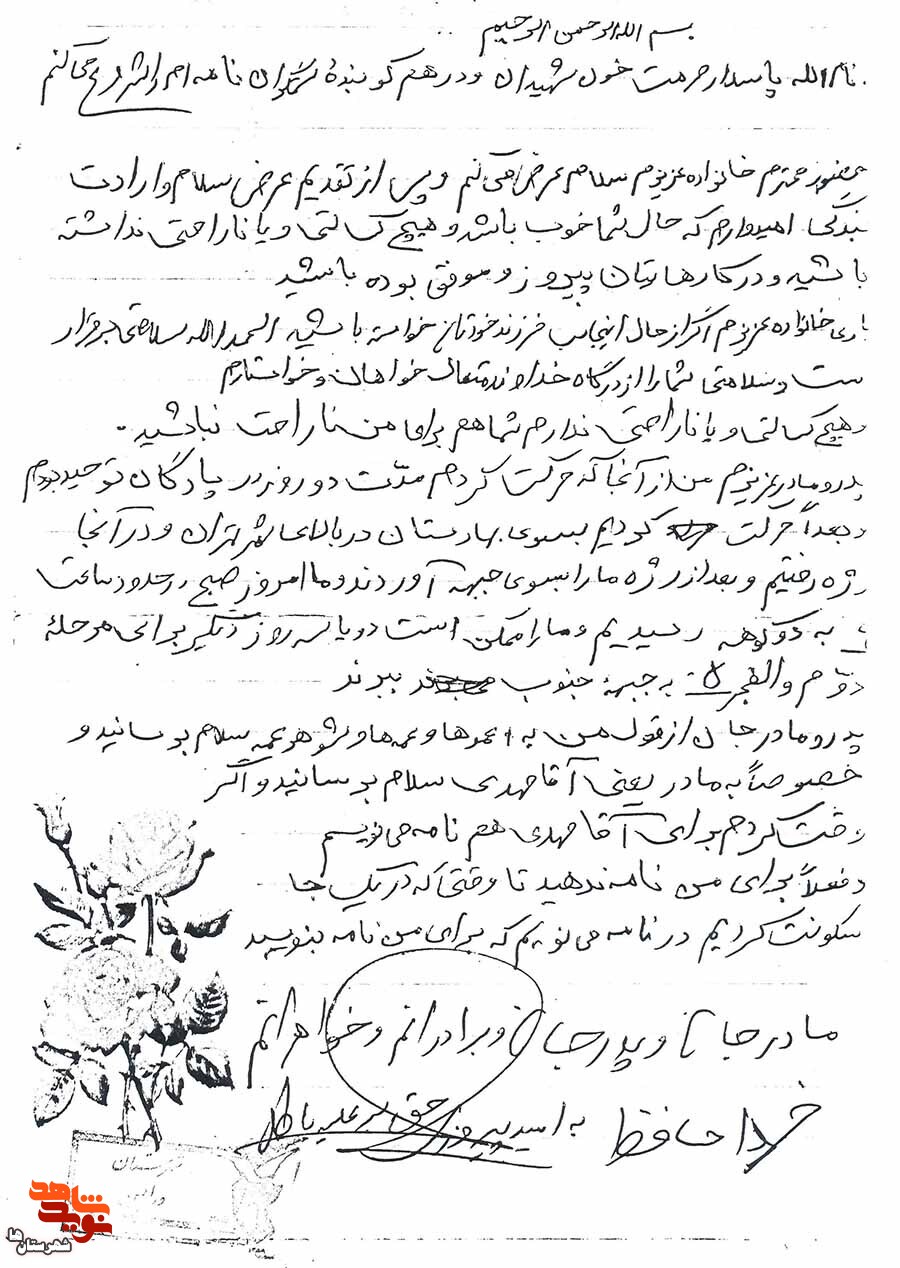 بسم الله الرحمن الرحیم
بنام الله پاسدار حرمت خون شهیدان و در هم کوبندهٔ ستمگران نامه ام را شروع می کنم
بحضور محترم خانواده عزیزم سلام عرض می کنم و پس از تقدیم عرض سلام و ارادت
بندگی امیدوارم که حال شما خوب باشد و هیچ کسالتی و یا ناراحتی نداشته
باشید و در کارهایتان پیروز و موفق بوده باشید
باری خانواده عزیزم اگر از حال اینجانب فرزند خودتان خواسته باشید الحمدالله سلامتی برقرار
ست و سلامتی شما را از درگاه خداوند متعال خواهان و خواستارم
و هیچ کسالتی و یا ناراحتی ندارم شما هم برای من ناراحت نباشید.
پدر و مادر عزیزم من از آنجا که حرکت کردم مدّت دو روز در پادگان توحید بودم
و بعداً حرکت کردیم بسوی بهارستان در بالای شهر تهران و در آنجا
رژه رفتیم و بعد از رژه ما را بسوی جبهه آوردند و ما امروز صبح در حدود ساعت
به دوکوهه رسیدیم و ما را ممکن است دو یا سه روز دیگر برای مرحلهٔ
دوّم والفجر به جبههٔ جنوب ببرند
پدر و مادر جان از قول من به عموها و عمه ها و شوهر عمه سلام برسانید و
خصوصاً به مادر یعنی آقا مهدی سلام برسانید و اگر
وقت کردم برای آقا مهدی هم نامه می نویسم
و فعلاً برای من نامه ندهید تا وقتی که در یک جا
سکونت کردیم در نامه می نویسم که برای من نامه بنویسید
مادر جان و پدر جان و برادرانم و خواهرانم
خدا حافظ به امید پیروزی حق بر علیه باطل
نوید شاهد
شهرستان ها